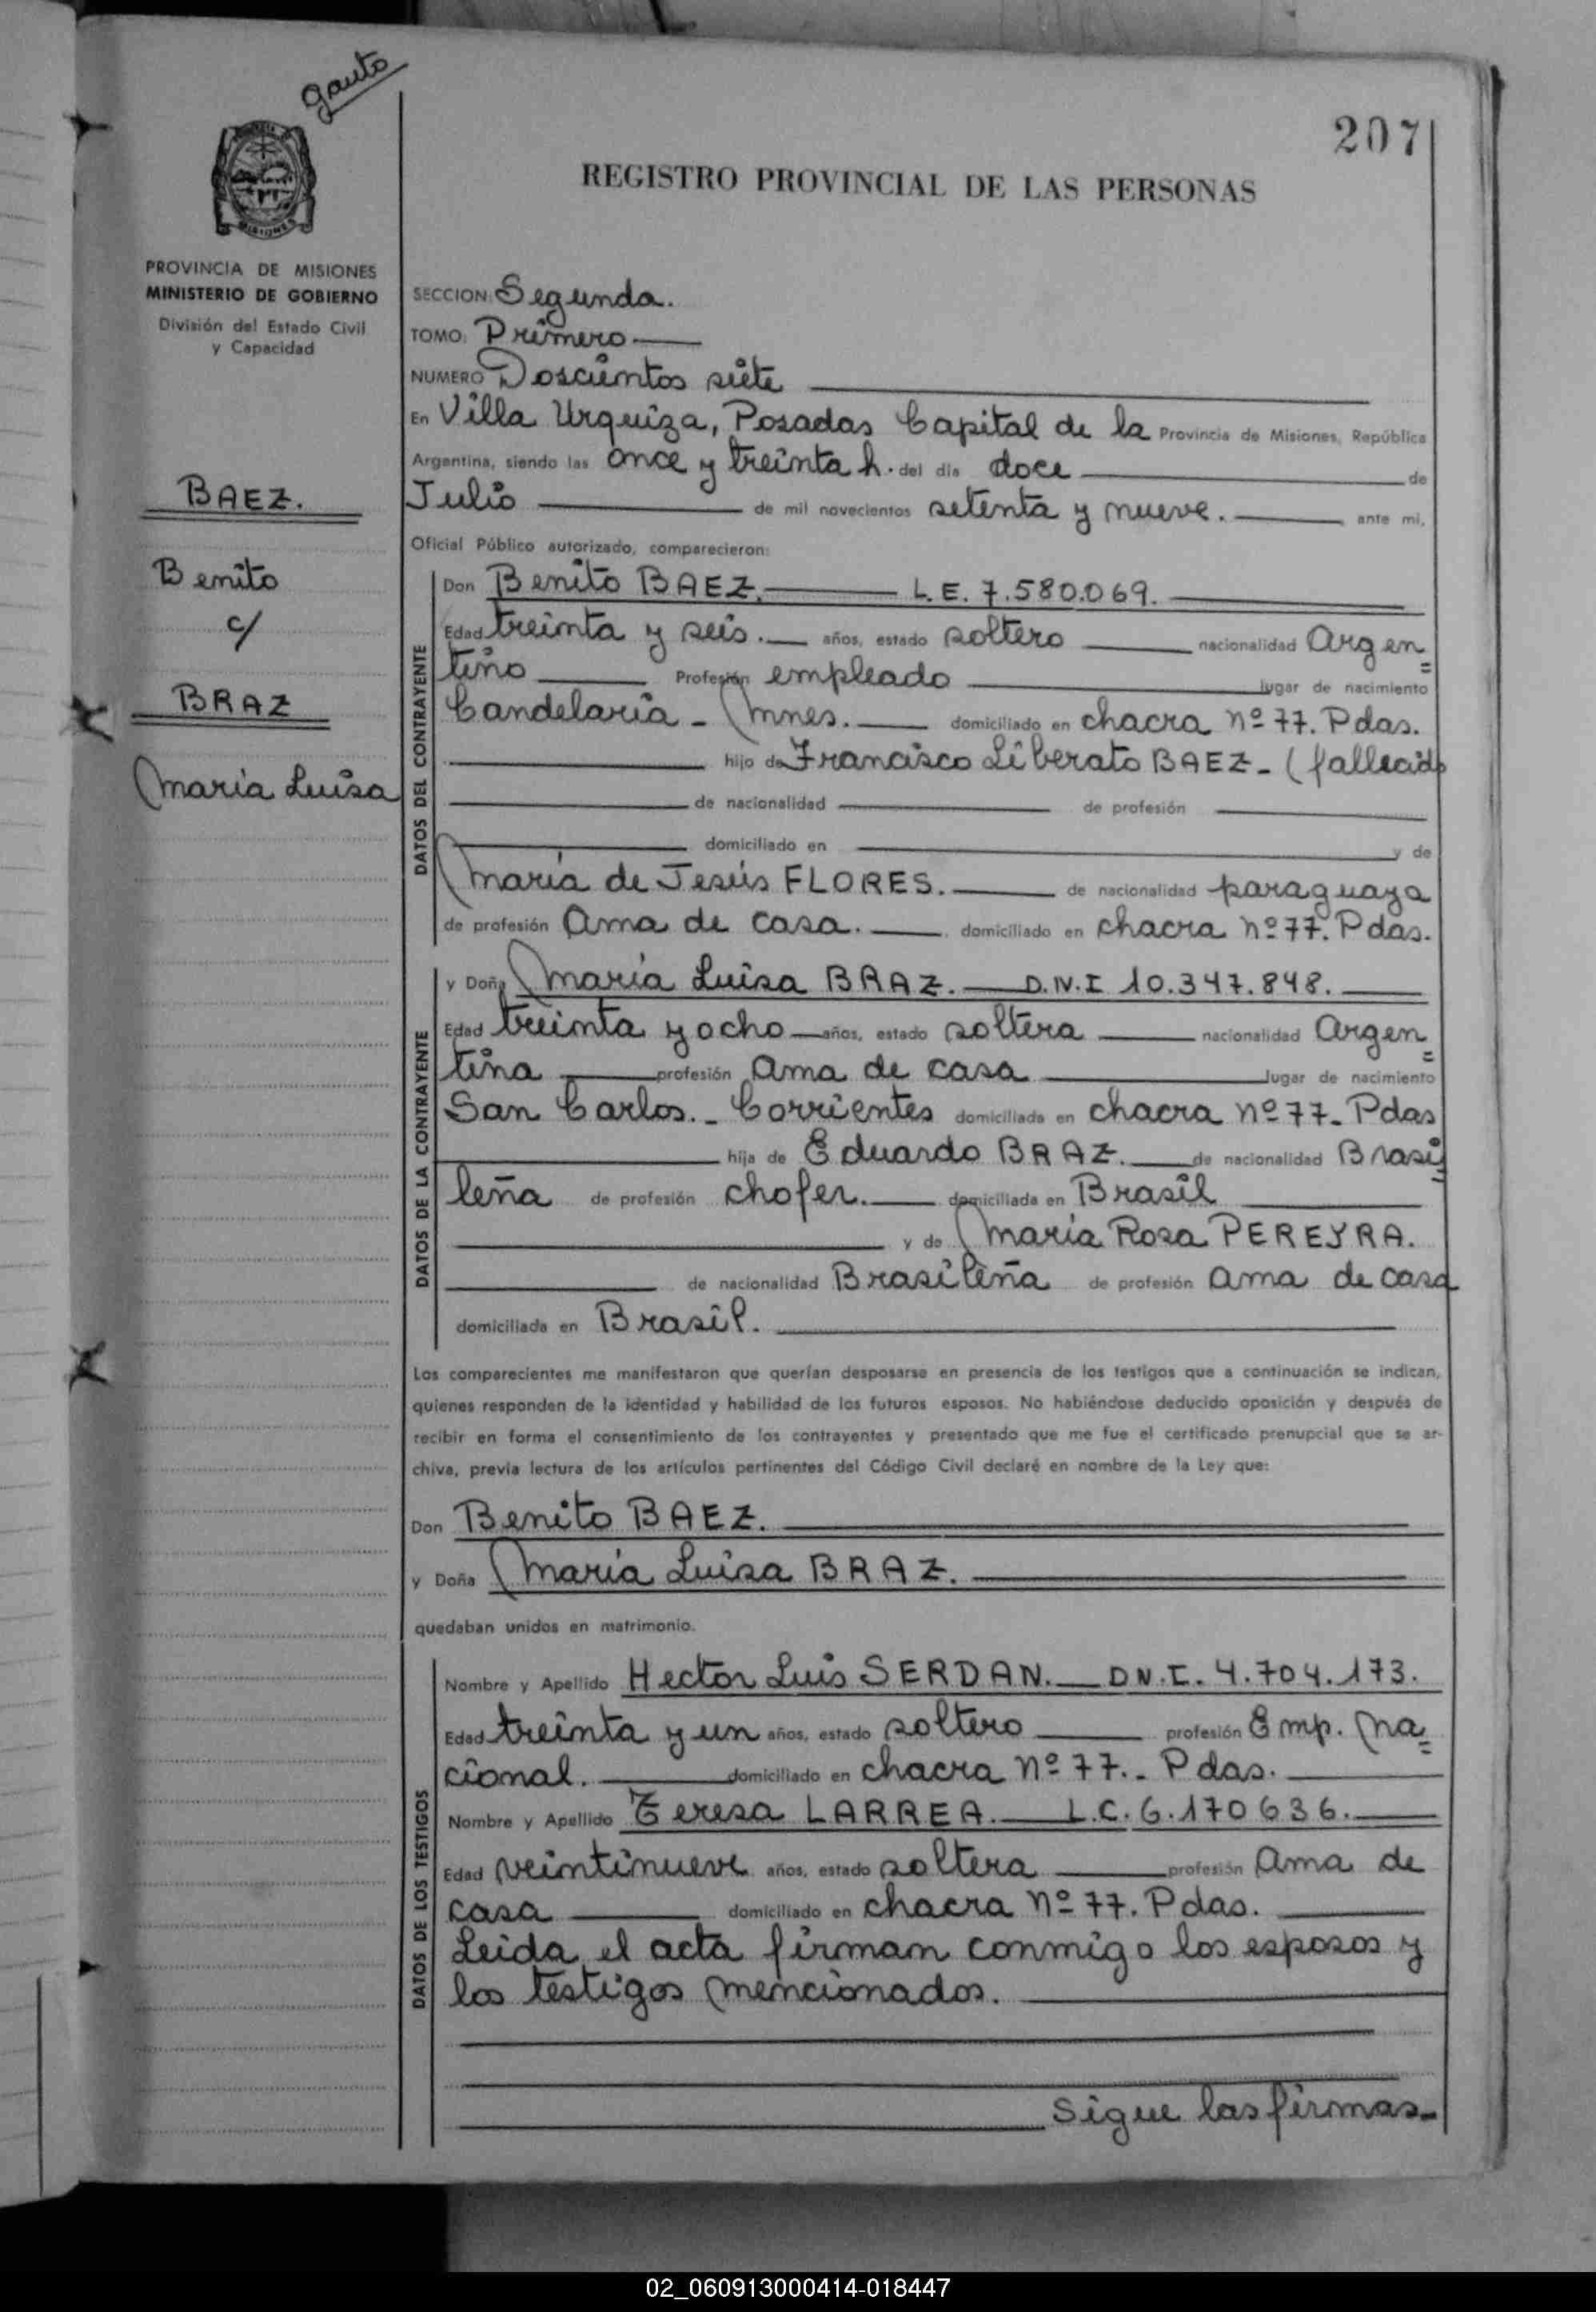 gauto
207
REGISTRO PROVINCIAL DE LAS PERSONAS
MISIONES
PROVINCIA DE MISIONES
MINISTERIO DE GOBIERNO
División del Estado Civil
y Capacidad
BAEZ.
Benito
c/
BRAZ
María Luisa
SECCION: Segunda.
TOMO: Primero
NUMERO Doscientos siete
En Villa Urquiza, Posadas Capital de la Provincia de Misiones, República
Argentina, siendo las once y treinta h. del día doce de
Julio de mil novecientos setenta y nueve. ante mi,
Oficial Público autorizado, comparecieron:
DATOS DEL CONTRAYENTE
Don Benito BAEZ. L.E. 7.580.069.
Edad treinta y seis. años, estado soltero nacionalidad Argen=
tino Profesión empleado lugar de nacimiento
Candelaria - Mnes. domiciliado en chacra nº 77. Pdas.
hijo de Francisco Liberato BAEZ - (fallecido
de nacionalidad de profesión
domiciliado en y de
María de Jesús FLORES. de nacionalidad paraguaya
de profesión Ama de casa. domiciliado en chacra nº 77. Pdas.
DATOS DE LA CONTRAYENTE
y Doña María Luisa BRAZ. D.N.I 10.347.848.
Edad treinta y ocho años, estado soltera nacionalidad Argen=
tina profesión Ama de casa lugar de nacimiento
San Carlos. - Corrientes domiciliada en chacra nº 77 - Pdas
hija de Eduardo BRAZ. de nacionalidad Brasi=
leña de profesión chofer. domiciliada en Brasil
y de María Rosa PEREYRA.
de nacionalidad Brasileña de profesión ama de casa
domiciliada en Brasil.
Los comparecientes me manifestaron que querían desposarse en presencia de los testigos que a continuación se indican,
quienes responden de la identidad y habilidad de los futuros esposos. No habiéndose deducido oposición y después de
recibir en forma el consentimiento de los contrayentes y presentado que me fue el certificado prenupcial que se ar-
chiva, previa lectura de los artículos pertinentes del Código Civil declaré en nombre de la Ley que:
Don Benito BAEZ.
y Doña María Luisa BRAZ.
quedaban unidos en matrimonio.
DATOS DE LOS TESTIGOS
Nombre y Apellido Hector Luis SERDAN. DN.I. 4.704.173.
Edad treinta y un años, estado soltero profesión Emp. Na=
cional. domiciliado en chacra nº 77. - Pdas.
Nombre y Apellido Teresa LARREA. L.C. 6.170636.
Edad veintinueve años, estado soltera profesión Ama de
casa domiciliado en chacra nº 77. Pdas.
Leida el acta firman conmigo los esposos y
los testigos mencionados.
Sigue las firmas-
02_060913000414-018447